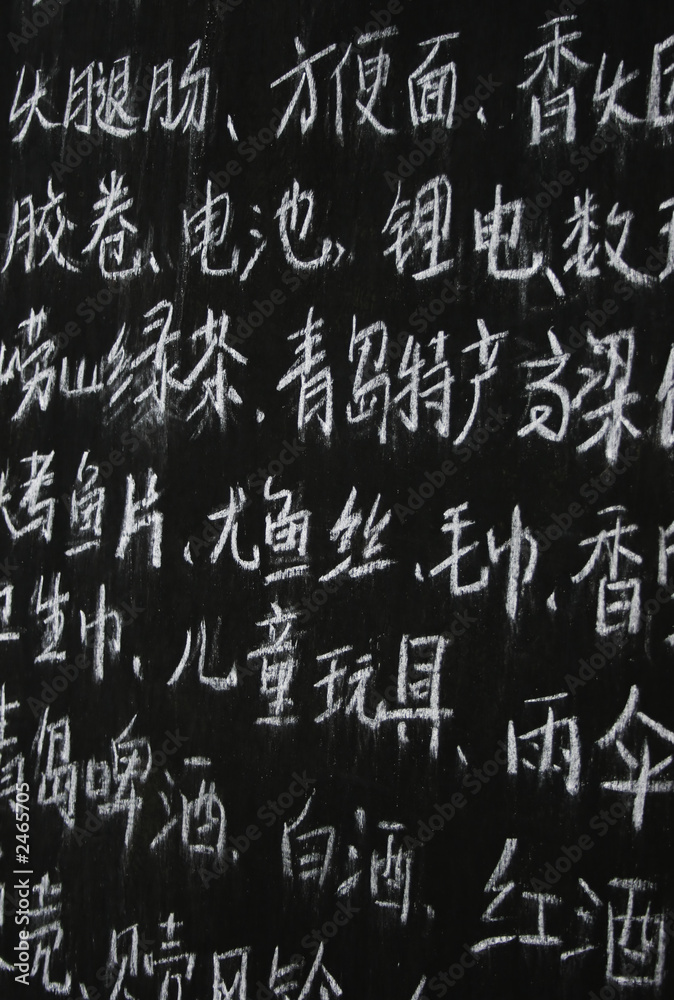 火腿肠、方便面、香火
胶卷、电池、锂电、数
崂山绿茶、青岛特产高梁
烤鱼片、尤鱼丝、毛巾、香
卫生巾、儿童玩具、雨伞
青岛啤酒、白酒、红酒
壳、贝壳风铃、
Adobe Stock | #2465705